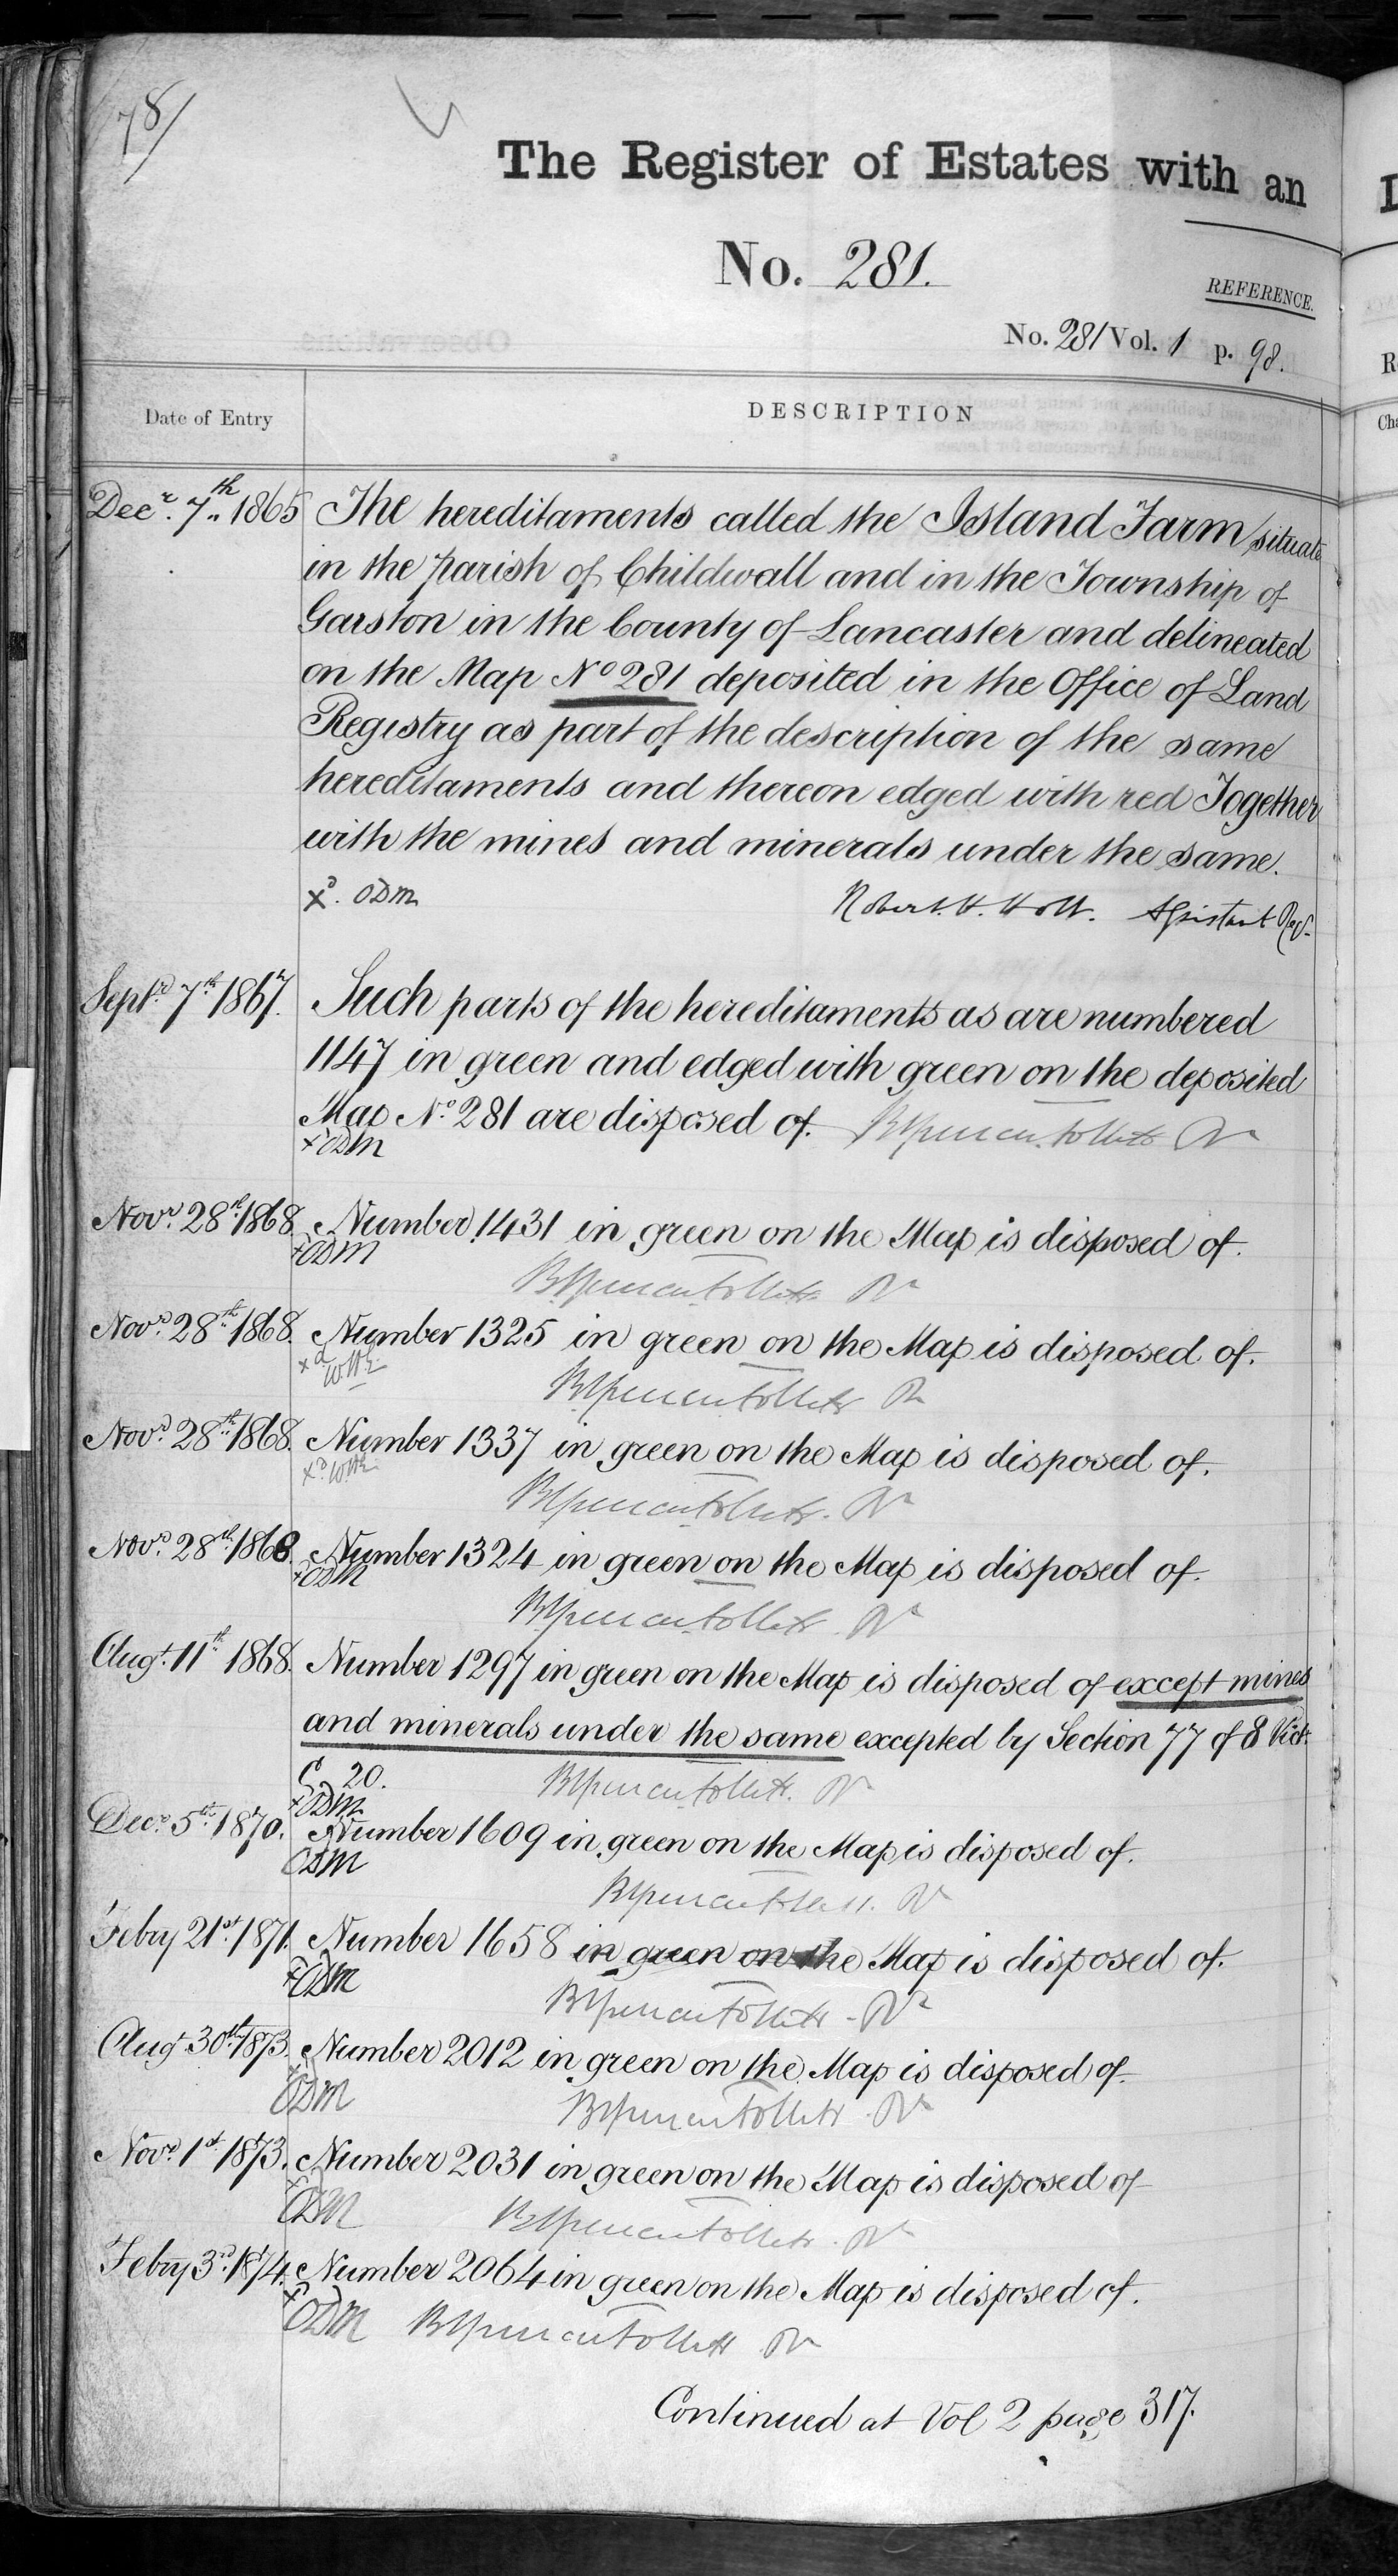 78/
The Register of Estates with an
No. 281.
REFERENCE.
No. 281 Vol. 1 p. 98.
Date of Entry
DESCRIPTION
Decr. 7th 1865 The hereditaments called the Island Farm situate
in the parish of Childwall and in the Township of
Garston in the County of Lancaster and delineated
on the Map No 281 deposited in the Office of Land
Registry as part of the description of the same
hereditaments and thereon edged with red Together
with the mines and minerals under the same.
xd. ODM Robert. H. Holt. Assistant Regr.
Septr. 7th 1867. Such parts of the hereditaments as are numbered
1147 in green and edged with green on the deposited
Map No. 281 are disposed of.
xd ODM
Novr. 28th 1868. Number 1431 in green on the Map is disposed of.
xd ODM
Novr. 28th 1868. Number 1325 in green on the Map is disposed of.
xd
Novr. 28th 1868. Number 1337 in green on the Map is disposed of.
xd
Novr. 28th 1868. Number 1324 in green on the Map is disposed of.
xd ODM
Augt. 11th 1868. Number 1297 in green on the Map is disposed of except mines
and minerals under the same excepted by Section 77 of 8 Vict.
C. 20.
xd ODM
Decr. 5th 1870. Number 1609 in green on the Map is disposed of.
ODM
Febry 21st 1871. Number 1658 in green on the Map is disposed of.
xd ODM
Augt. 30th 1873. Number 2012 in green on the Map is disposed of.
xd ODM
Novr. 1st 1873. Number 2031 in green on the Map is disposed of
xd ODM
Febry 3rd 1874. Number 2064 in green on the Map is disposed of.
xd ODM
Continued at Vol 2 page 317.